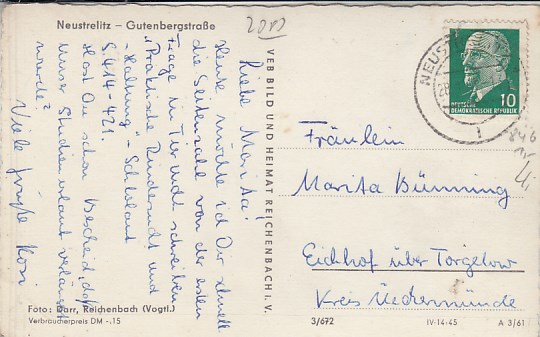 Neustrelitz – Gutenbergstraße
Liebe Marita!
Heute möchte ich Dir schnell
die Seitenzahl von der ersten
Frage in Tierzucht schreiben
„Praktische Rinderzucht und
-Haltung" - Schlolaut
S. 414-421.
Hast Du schon Bescheid, daß
unser Studienurlaub verlängert
wurde?
Viele Grüße Rosi
Foto: Darr, Reichenbach (Vogtl.)
Verbraucherpreis DM -.15
VEB BILD UND HEIMAT REICHENBACH i. V.
3/672
IV-14-45
A 3/61
NEUS
DEUTSCHE
DEMOKRATISCHE REPUBLIK
10
846
Fräulein
Marita Bünning
Eichhof über Torgelow
Kreis Ueckermünde